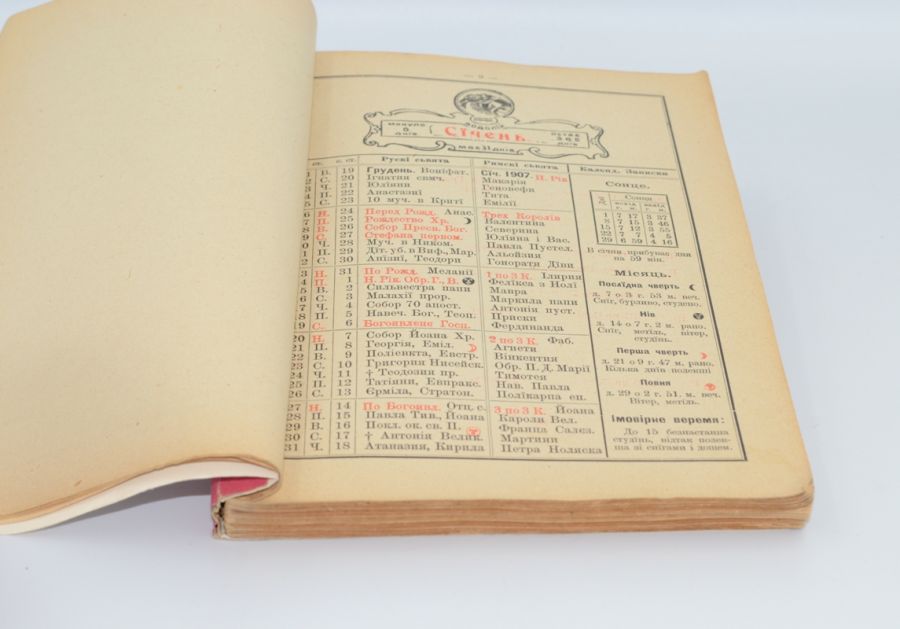 — 3 —
минуло 0 днїв
Водолїй
Сїчень
має 31 днів
лишає 365 днїв
ст. н. ст. Рускі сьвята Римскі сьвята Календ. Записки
1 В. 19 Грудень. Воніфат. Сїч. 1907. Н. Рік
2 С. 20 Ігнатия свмч. Макарія
3 Ч. 21 Юлїяни Геновефи
4 П. 22 Анастазиї Тита
5 С. 23 10 муч. в Криті Емілїї
6 Н. 24 Перед Рожд. Анас. Трех Королїв
7 П. 25 Рождество Хр. Валєнтина
8 В. 26 Собор Пресв. Бог. Северина
9 С. 27 Стефана первом. Юлїяна і Вас.
Ч. 28 Муч. в Ником. Павла Пустел.
1 П. 29 Діт. уб. в Виф., Мар. Альойзия
2 С. 30 Анїзиї, Теодори Гонорати Дїви
3 Н. 31 По Рожд. Мелянїї 1 по 3 К. Ілярия
4 П. 1 Н. Рік. Обр. Г., В. Фелїкса з Нолї
5 В. 2 Сильвестра папи Мавра
6 С. 3 Малахії прор. Маркила папи
7 Ч. 4 Собор 70 апост. Антонїя пуст.
18 П. 5 Навеч. Бог., Теоп. Приски
19 С. 6 Богоявленє Госп. Фердинанда
20 Н. 7 Собор Йоана Хр. 2 по 3 К. Фаб.
21 П. 8 Георгія, Еміл. Агнети
22 В. 9 Полїєвкта, Евстр. Вінкентия
23 С. 10 Григория Нисейск. Обр. П. Д. Марії
24 Ч. 11 † Теодозия пр. Тимотея
25 П. 12 Татіяни, Евпракс. Нав. Павла
26 С. 13 Єрміла, Стратон. Полїкарпа еп.
27 Н. 14 По Богоявл. Отц. с. 3 по 3 К. Йоана
28 П. 15 Павла Тив., Йоана Кароля Вел.
29 В. 16 Покл. ок. св. П. Франца Салєз.
30 С. 17 † Антонїя Велик. Мартини
31 Ч. 18 Атаназия, Кирила Петра Ноляска
Сонце.
Сонця
схід захід
г. м. г. м.
1 7 17 3 37
8 7 15 3 46
15 7 12 3 55
22 7 7 4 5
29 6 59 4 16
В сїчни прибуває дня на 59 мін.
Місяць.
Послїдна чверть
д. 7 о 3 г. 53 м. веч.
Снїг, бурливо, студено.
Нїв
д. 14 о 7 г. 2 м. рано.
Снїг, метїль, вітер,
студїнь.
Перша чверть
д. 21 о 9 г. 47 м. рано.
Кілька днїв полекші
Повня
д. 29 о 2 г. 51. м. веч.
Вітер, метїль.
Імовірне веремя:
До 15 безнастанна
студїнь, відтак полек-
ша зі снїгами і дощем.